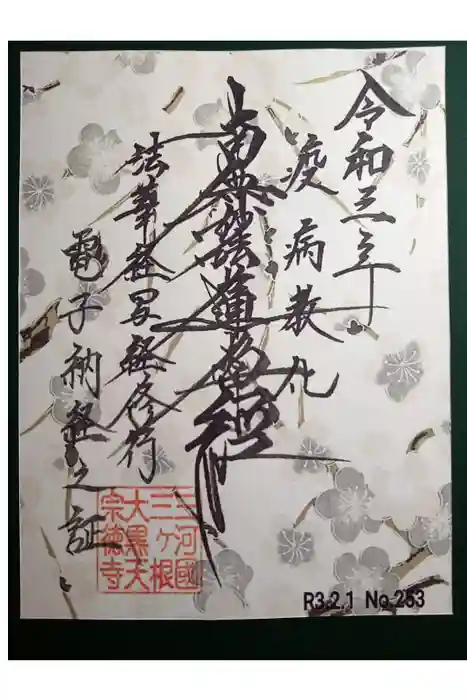 令和三年
疫病散丸
南無妙法蓮華経
法華経写経修行
電子納経之証
三河國
三ヶ根
大黒天
宗徳寺
R3.2.1 No.253